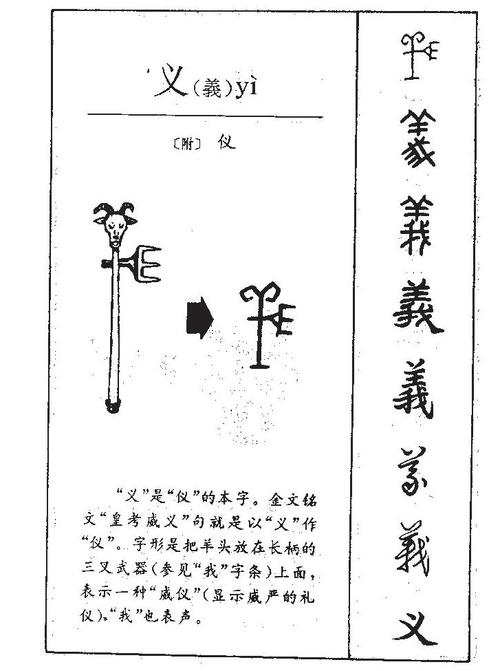 义(義)yì
〔附〕 仪
“义”是“仪”的本字。金文铭
文“皇考威义”句就是以“义”作
“仪”。字形是把羊头放在长柄的
三叉武器(参见“我”字条)上面,
表示一种“威仪”(显示威严的礼
仪)。“我”也表声。
義
義
義
義
義
义